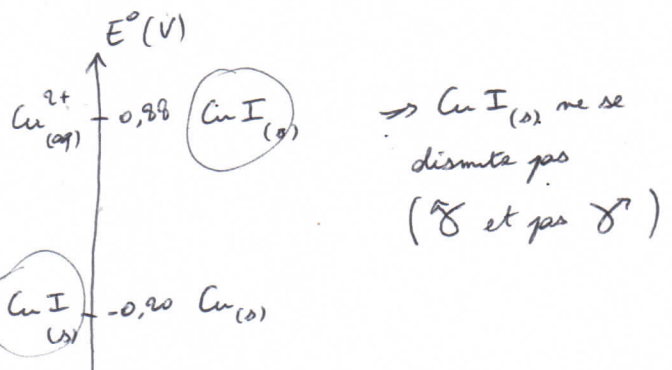 E°(V)
Cu²⁺(aq) 0,88 CuI(s)
→ CuI(s) ne se
dismute pas
(γ et pas γ)
CuI(s) -0,20 Cu(s)